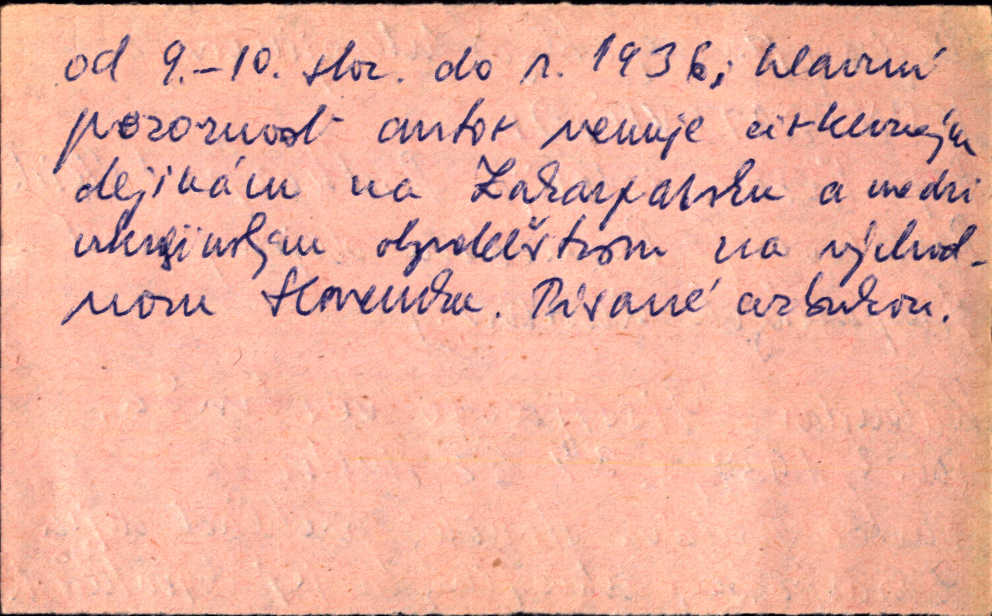 od 9.–10. stor. do r. 1936; hlavnú
pozornosť autor venuje cirkevným
dejinám na Zakarpatsku a medzi
ukrajinským obyvateľstvom na východ-
nom Slovensku. Písané azbukou.